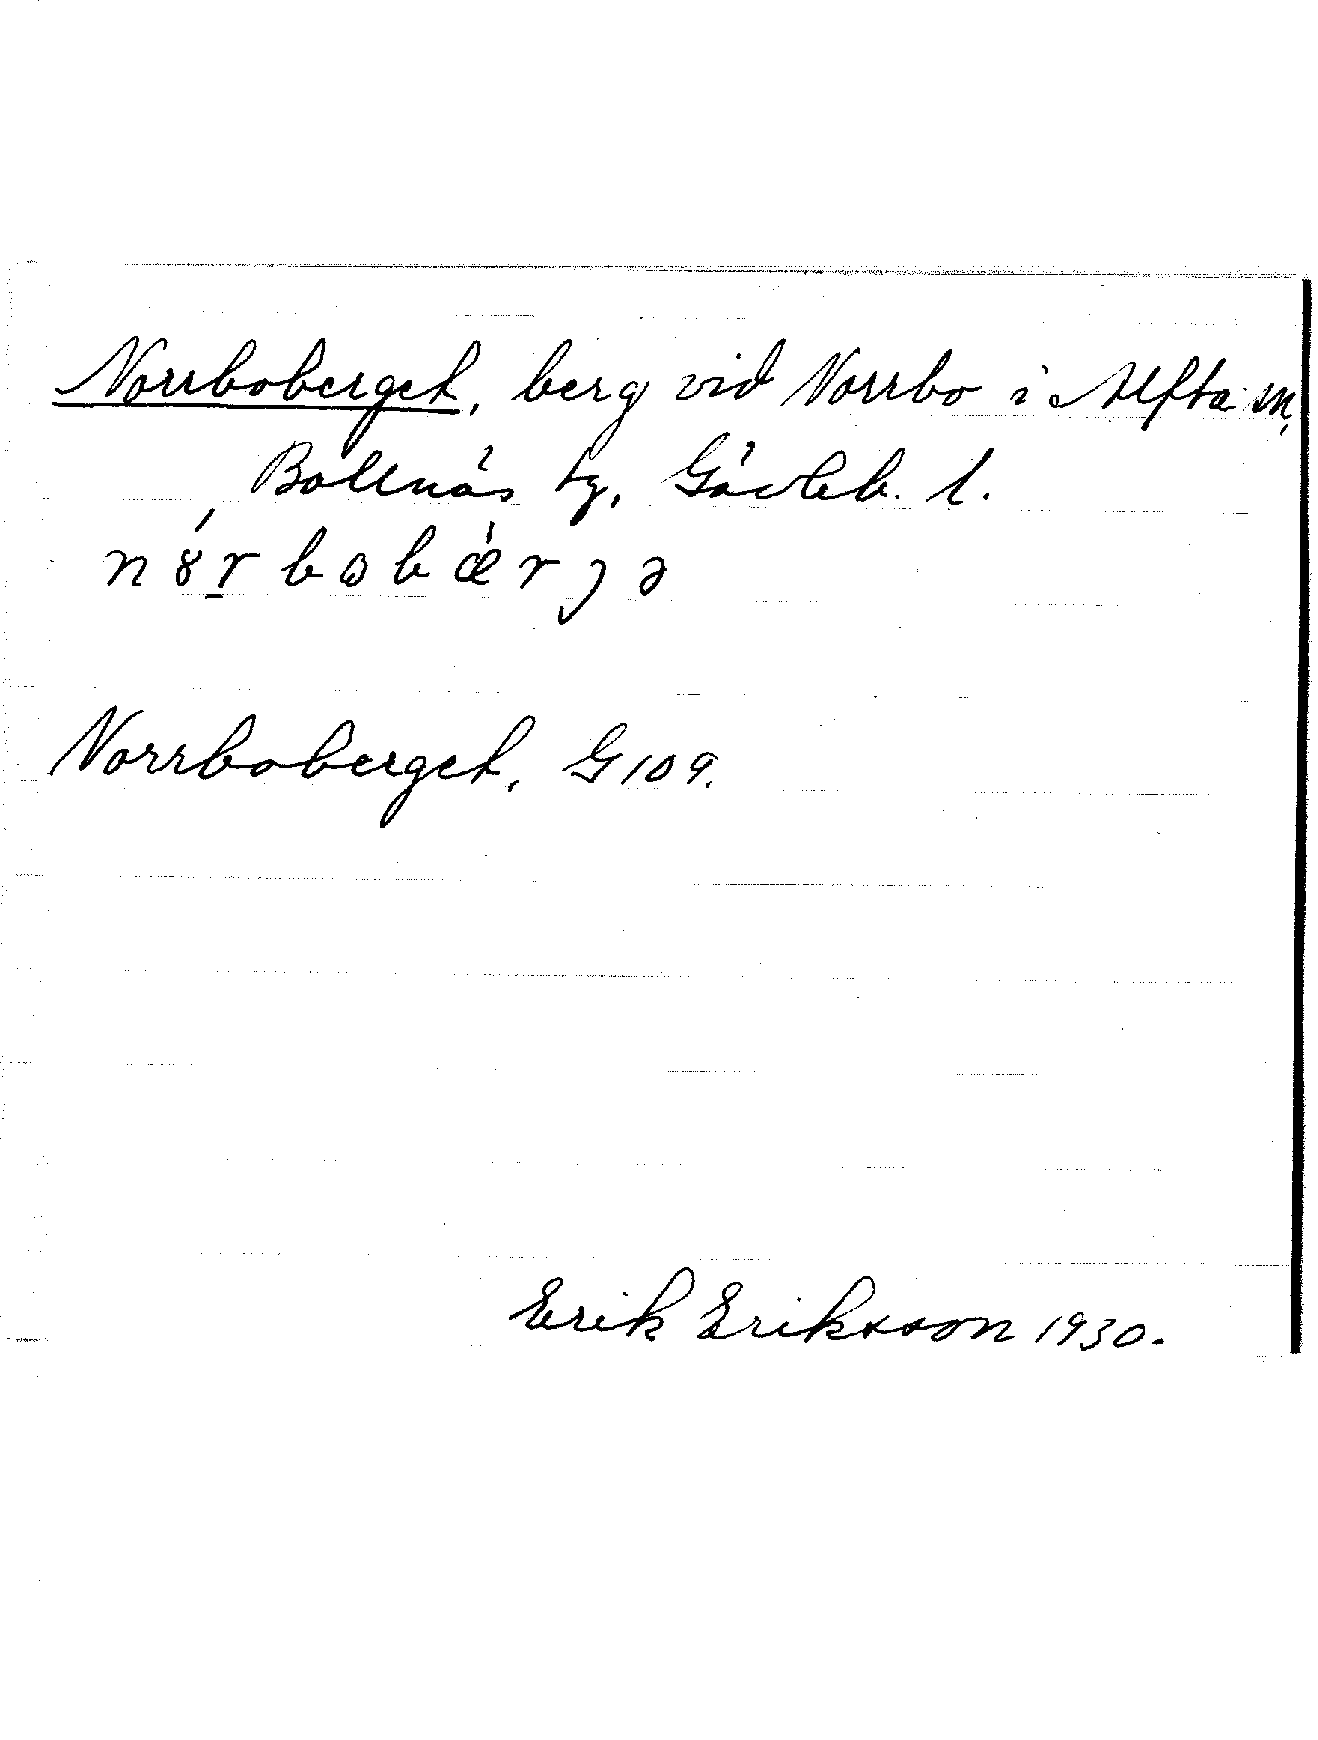 Norrboberget, berg vid Norrbo i Alfta sn,
Bollnäs tg, Gävleb. l.
nó̤r̲bωbǽrȷə
Norrboberget, G 109.
Erik Eriksson 1930.